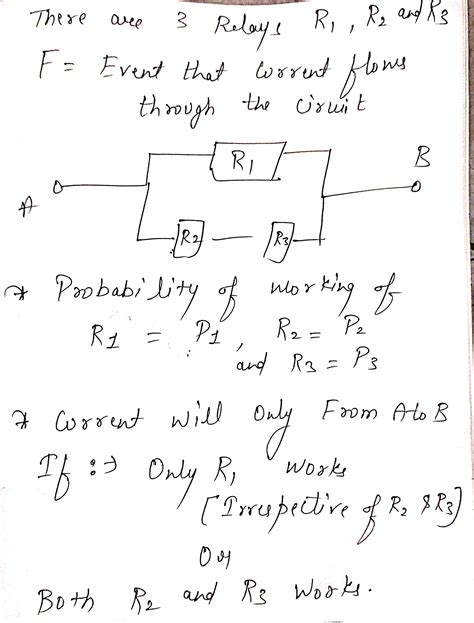 There are 3 Relays R1, R2 and R3
F = Event that current flows
through the circuit
R1
B
A
R2
R3
* Probability of working of
R1 = P1, R2 = P2
and R3 = P3
* Current will only From A to B
If :→ Only R1 works
[Irrespective of R2 & R3]
Or
Both R2 and R3 works.